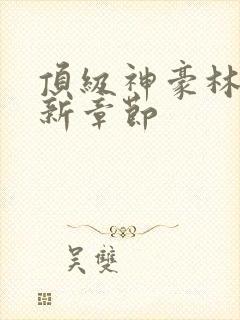 頂級神豪林
新章節
吳雙